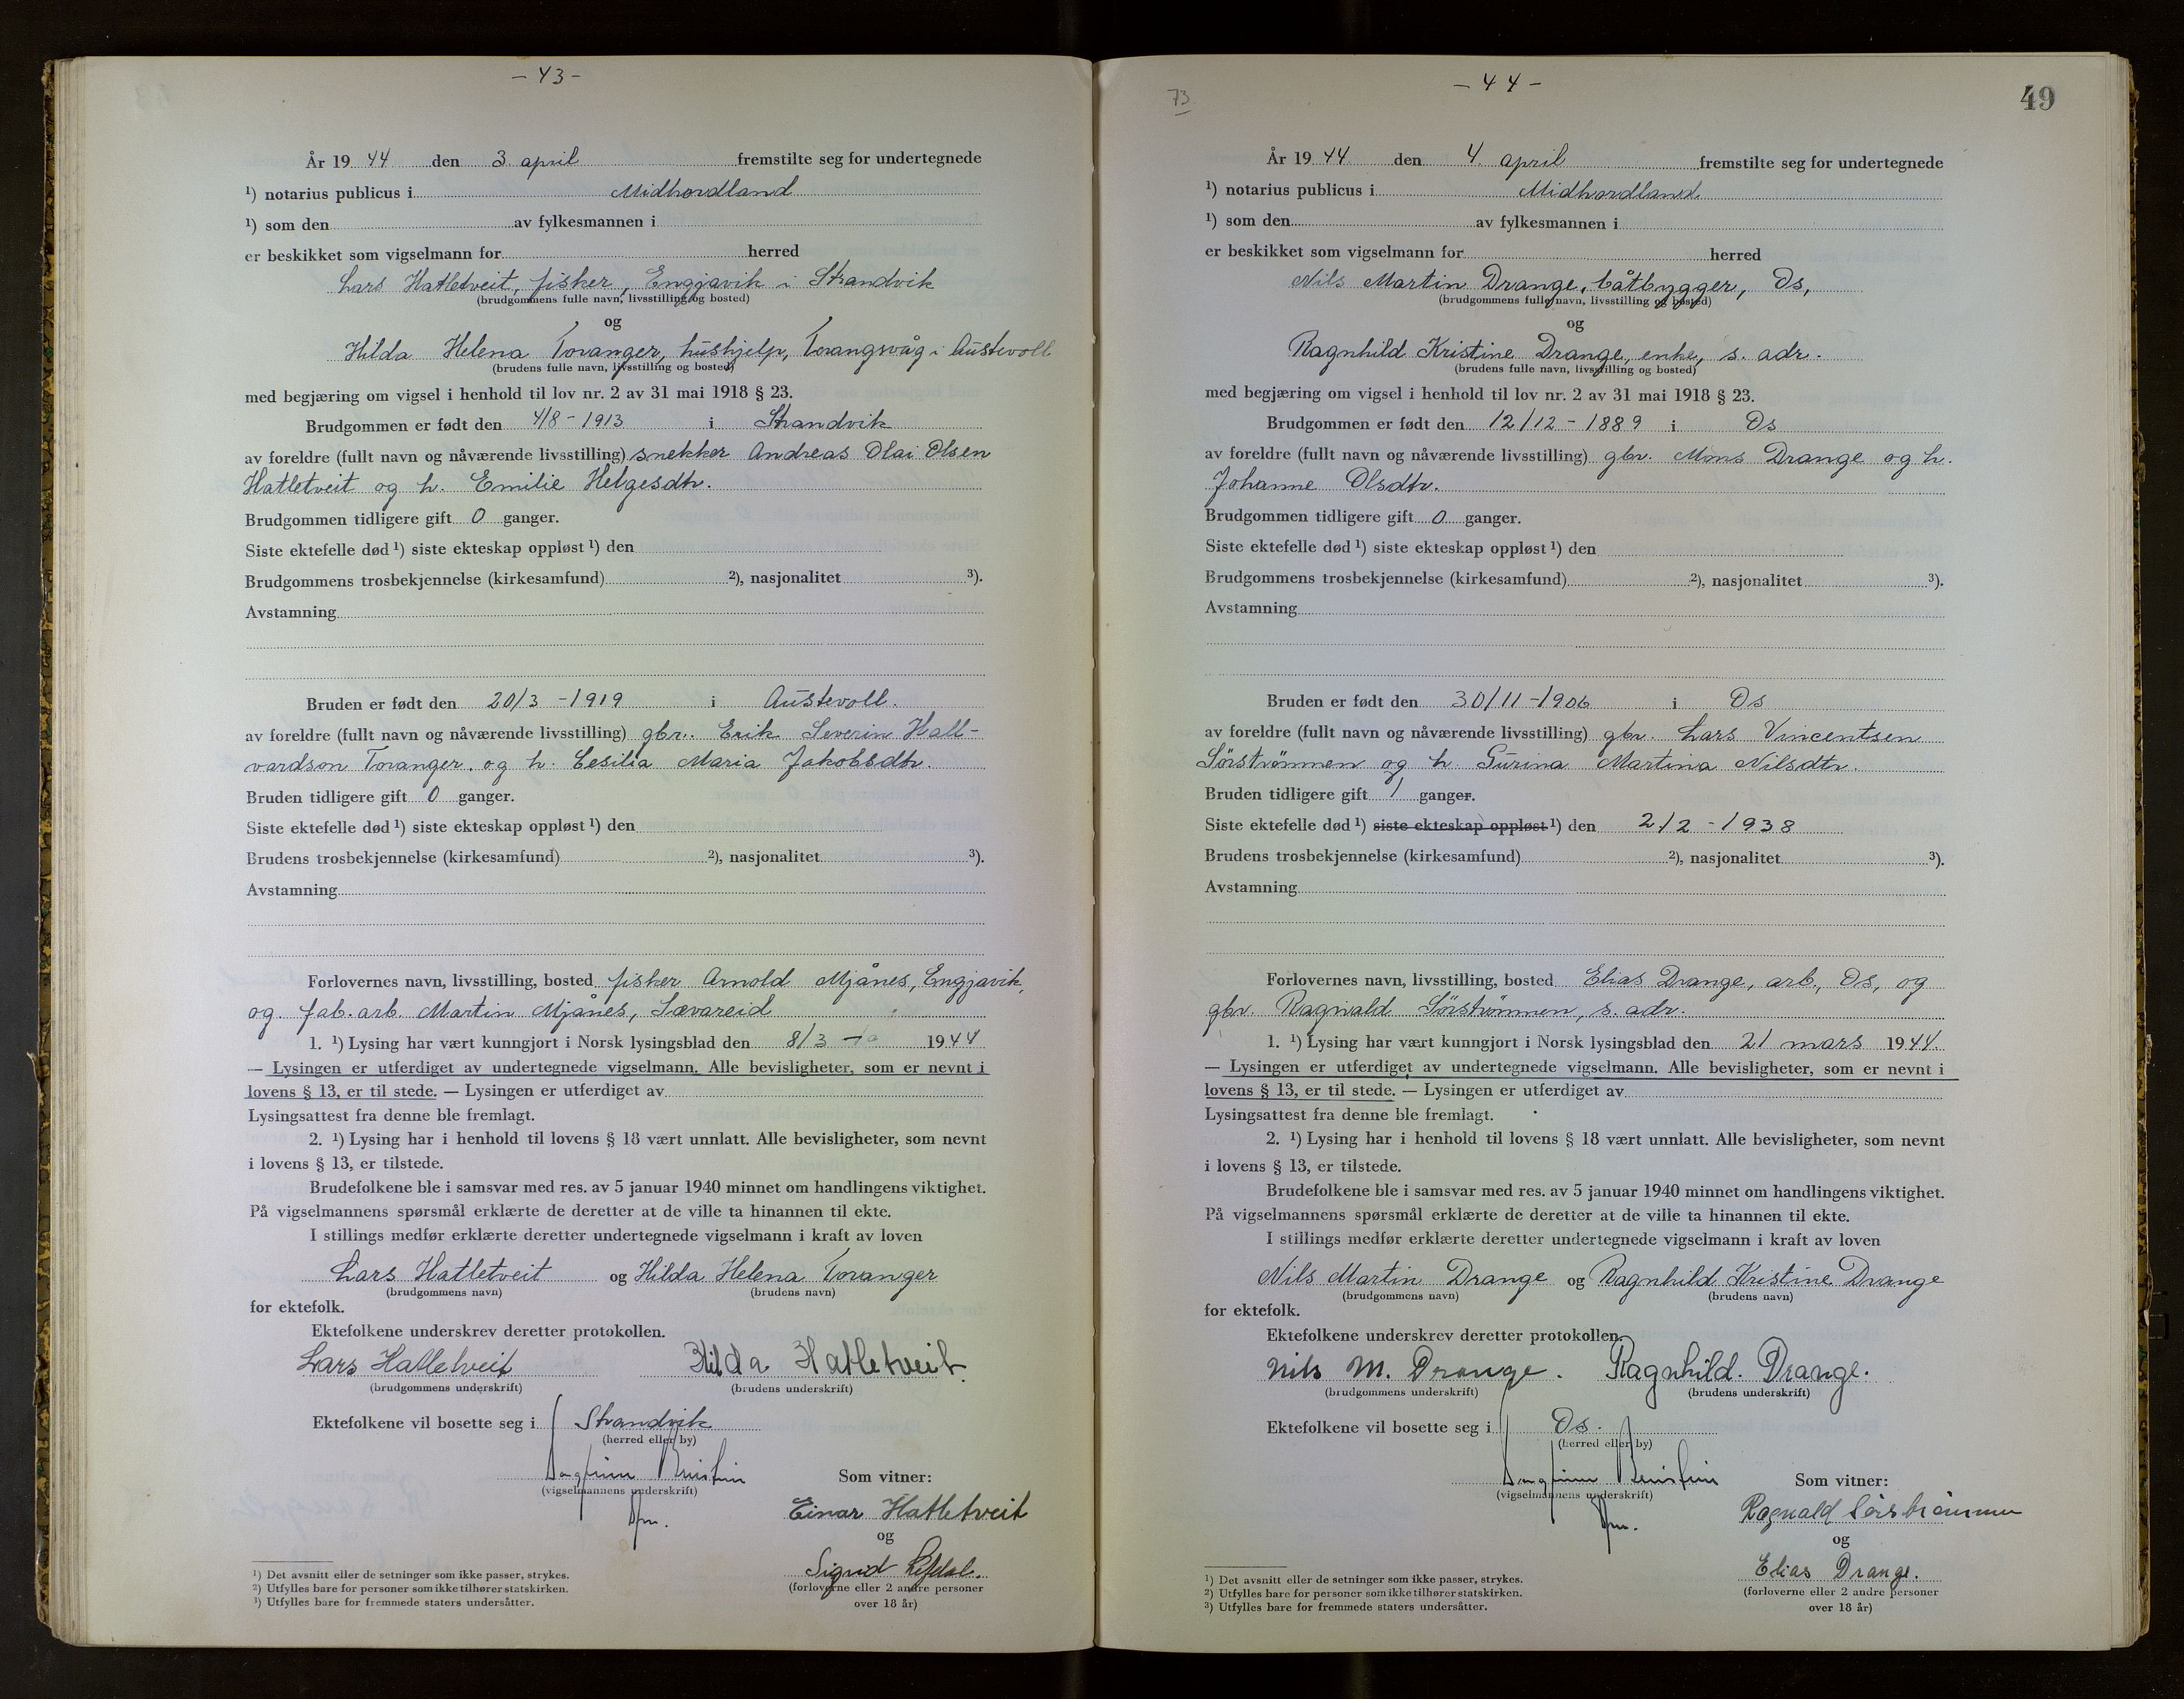 - 43 -
År 19 44 den 3. april fremstilte seg for undertegnede
¹) notarius publicus i Midhordland
¹) som den av fylkesmannen i
er beskikket som vigselmann for herred
Lars Hatletveit, fisker, Engjavik i Strandvik
(brudgommens fulle navn, livsstilling og bosted)
og
Hilda Helena Toranger, hushjelp, Torangsvåg i Austevoll
(brudens fulle navn, livsstilling og bosted)
med begjæring om vigsel i henhold til lov nr. 2 av 31 mai 1918 § 23.
Brudgommen er født den 4/8 - 1913 i Strandvik
av foreldre (fullt navn og nåværende livsstilling) snekker Andreas Olai Olsen
Hatletveit og h. Emilie Helgesdtr.
Brudgommen tidligere gift 0 ganger.
Siste ektefelle død ¹) siste ekteskap oppløst ¹) den
Brudgommens trosbekjennelse (kirkesamfund) ²), nasjonalitet ³).
Avstamning
Bruden er født den 20/3 - 1919 i Austevoll.
av foreldre (fullt navn og nåværende livsstilling) gbr. Erik Severin Hall-
vardson Toranger. og h. Cesilia Maria Jakobsdtr.
Bruden tidligere gift 0 ganger.
Siste ektefelle død ¹) siste ekteskap oppløst ¹) den
Brudens trosbekjennelse (kirkesamfund) ²), nasjonalitet ³).
Avstamning
Forlovernes navn, livsstilling, bosted fisker Arnold Mjånes, Engjavik,
og fab. arb. Martin Mjånes, Sævareid
1. ¹) Lysing har vært kunngjort i Norsk lysingsblad den 8/3 - 1944
— Lysingen er utferdiget av undertegnede vigselmann. Alle bevisligheter, som er nevnt i
lovens § 13, er til stede. — Lysingen er utferdiget av
Lysingsattest fra denne ble fremlagt.
2. ¹) Lysing har i henhold til lovens § 18 vært unnlatt. Alle bevisligheter, som nevnt
i lovens § 13, er tilstede.
Brudefolkene ble i samsvar med res. av 5 januar 1940 minnet om handlingens viktighet.
På vigselmannens spørsmål erklærte de deretter at de ville ta hinannen til ekte.
I stillings medfør erklærte deretter undertegnede vigselmann i kraft av loven
Lars Hatletveit og Hilda Helena Toranger
(brudgommens navn) (brudens navn)
for ektefolk.
Ektefolkene underskrev deretter protokollen.
Lars Hatletveit Hilda Hatletveit.
(brudgommens underskrift) (brudens underskrift)
Ektefolkene vil bosette seg i Strandvik
(herred eller by)
(vigselmannens underskrift)
Som vitner:
Einar Hatletveit
og
Sigrid
(forloverne eller 2 andre personer
over 18 år)
¹) Det avsnitt eller de setninger som ikke passer, strykes.
²) Utfylles bare for personer som ikke tilhører statskirken.
³) Utfylles bare for fremmede staters undersåtter.
73
- 44 -
49
År 19 44 den 4. april fremstilte seg for undertegnede
¹) notarius publicus i Midhordland
¹) som den av fylkesmannen i
er beskikket som vigselmann for herred
Nils Martin Drange, båtbygger, Os,
(brudgommens fulle navn, livsstilling og bosted)
og
Ragnhild Kristine Drange, enke, s. adr.
(brudens fulle navn, livsstilling og bosted)
med begjæring om vigsel i henhold til lov nr. 2 av 31 mai 1918 § 23.
Brudgommen er født den 12/12 - 1889 i Os
av foreldre (fullt navn og nåværende livsstilling) gbr. Mons Drange og h.
Johanne Olsdtr.
Brudgommen tidligere gift 0 ganger.
Siste ektefelle død ¹) siste ekteskap oppløst ¹) den
Brudgommens trosbekjennelse (kirkesamfund) ²), nasjonalitet ³).
Avstamning
Bruden er født den 30/11 - 1906 i Os
av foreldre (fullt navn og nåværende livsstilling) gbr. Lars Vincentsen
Sörströnmen og h. Gurina Martina Nilsdtr.
Bruden tidligere gift 1 ganger.
Siste ektefelle død ¹) siste ekteskap oppløst ¹) den 2/2 - 1938
Brudens trosbekjennelse (kirkesamfund) ²), nasjonalitet ³).
Avstamning
Forlovernes navn, livsstilling, bosted Elias Drange, arb., Os, og
gbr. Ragnvald Sörströnmen, s. adr.
1. ¹) Lysing har vært kunngjort i Norsk lysingsblad den 21 mars 1944.
— Lysingen er utferdiget av undertegnede vigselmann. Alle bevisligheter, som er nevnt i
lovens § 13, er til stede. — Lysingen er utferdiget av
Lysingsattest fra denne ble fremlagt.
2. ¹) Lysing har i henhold til lovens § 18 vært unnlatt. Alle bevisligheter, som nevnt
i lovens § 13, er tilstede.
Brudefolkene ble i samsvar med res. av 5 januar 1940 minnet om handlingens viktighet.
På vigselmannens spørsmål erklærte de deretter at de ville ta hinannen til ekte.
I stillings medfør erklærte deretter undertegnede vigselmann i kraft av loven
Nils Martin Drange og Ragnhild Kristine Drange
(brudgommens navn) (brudens navn)
for ektefolk.
Ektefolkene underskrev deretter protokollen.
Nils M. Drange. Ragnhild. Drange.
(brudgommens underskrift) (brudens underskrift)
Ektefolkene vil bosette seg i Os.
(herred eller by)
(vigselmannens underskrift)
Som vitner:
Ragnvald
og
Elias Drange.
(forloverne eller 2 andre personer
over 18 år)
¹) Det avsnitt eller de setninger som ikke passer, strykes.
²) Utfylles bare for personer som ikke tilhører statskirken.
³) Utfylles bare for fremmede staters undersåtter.